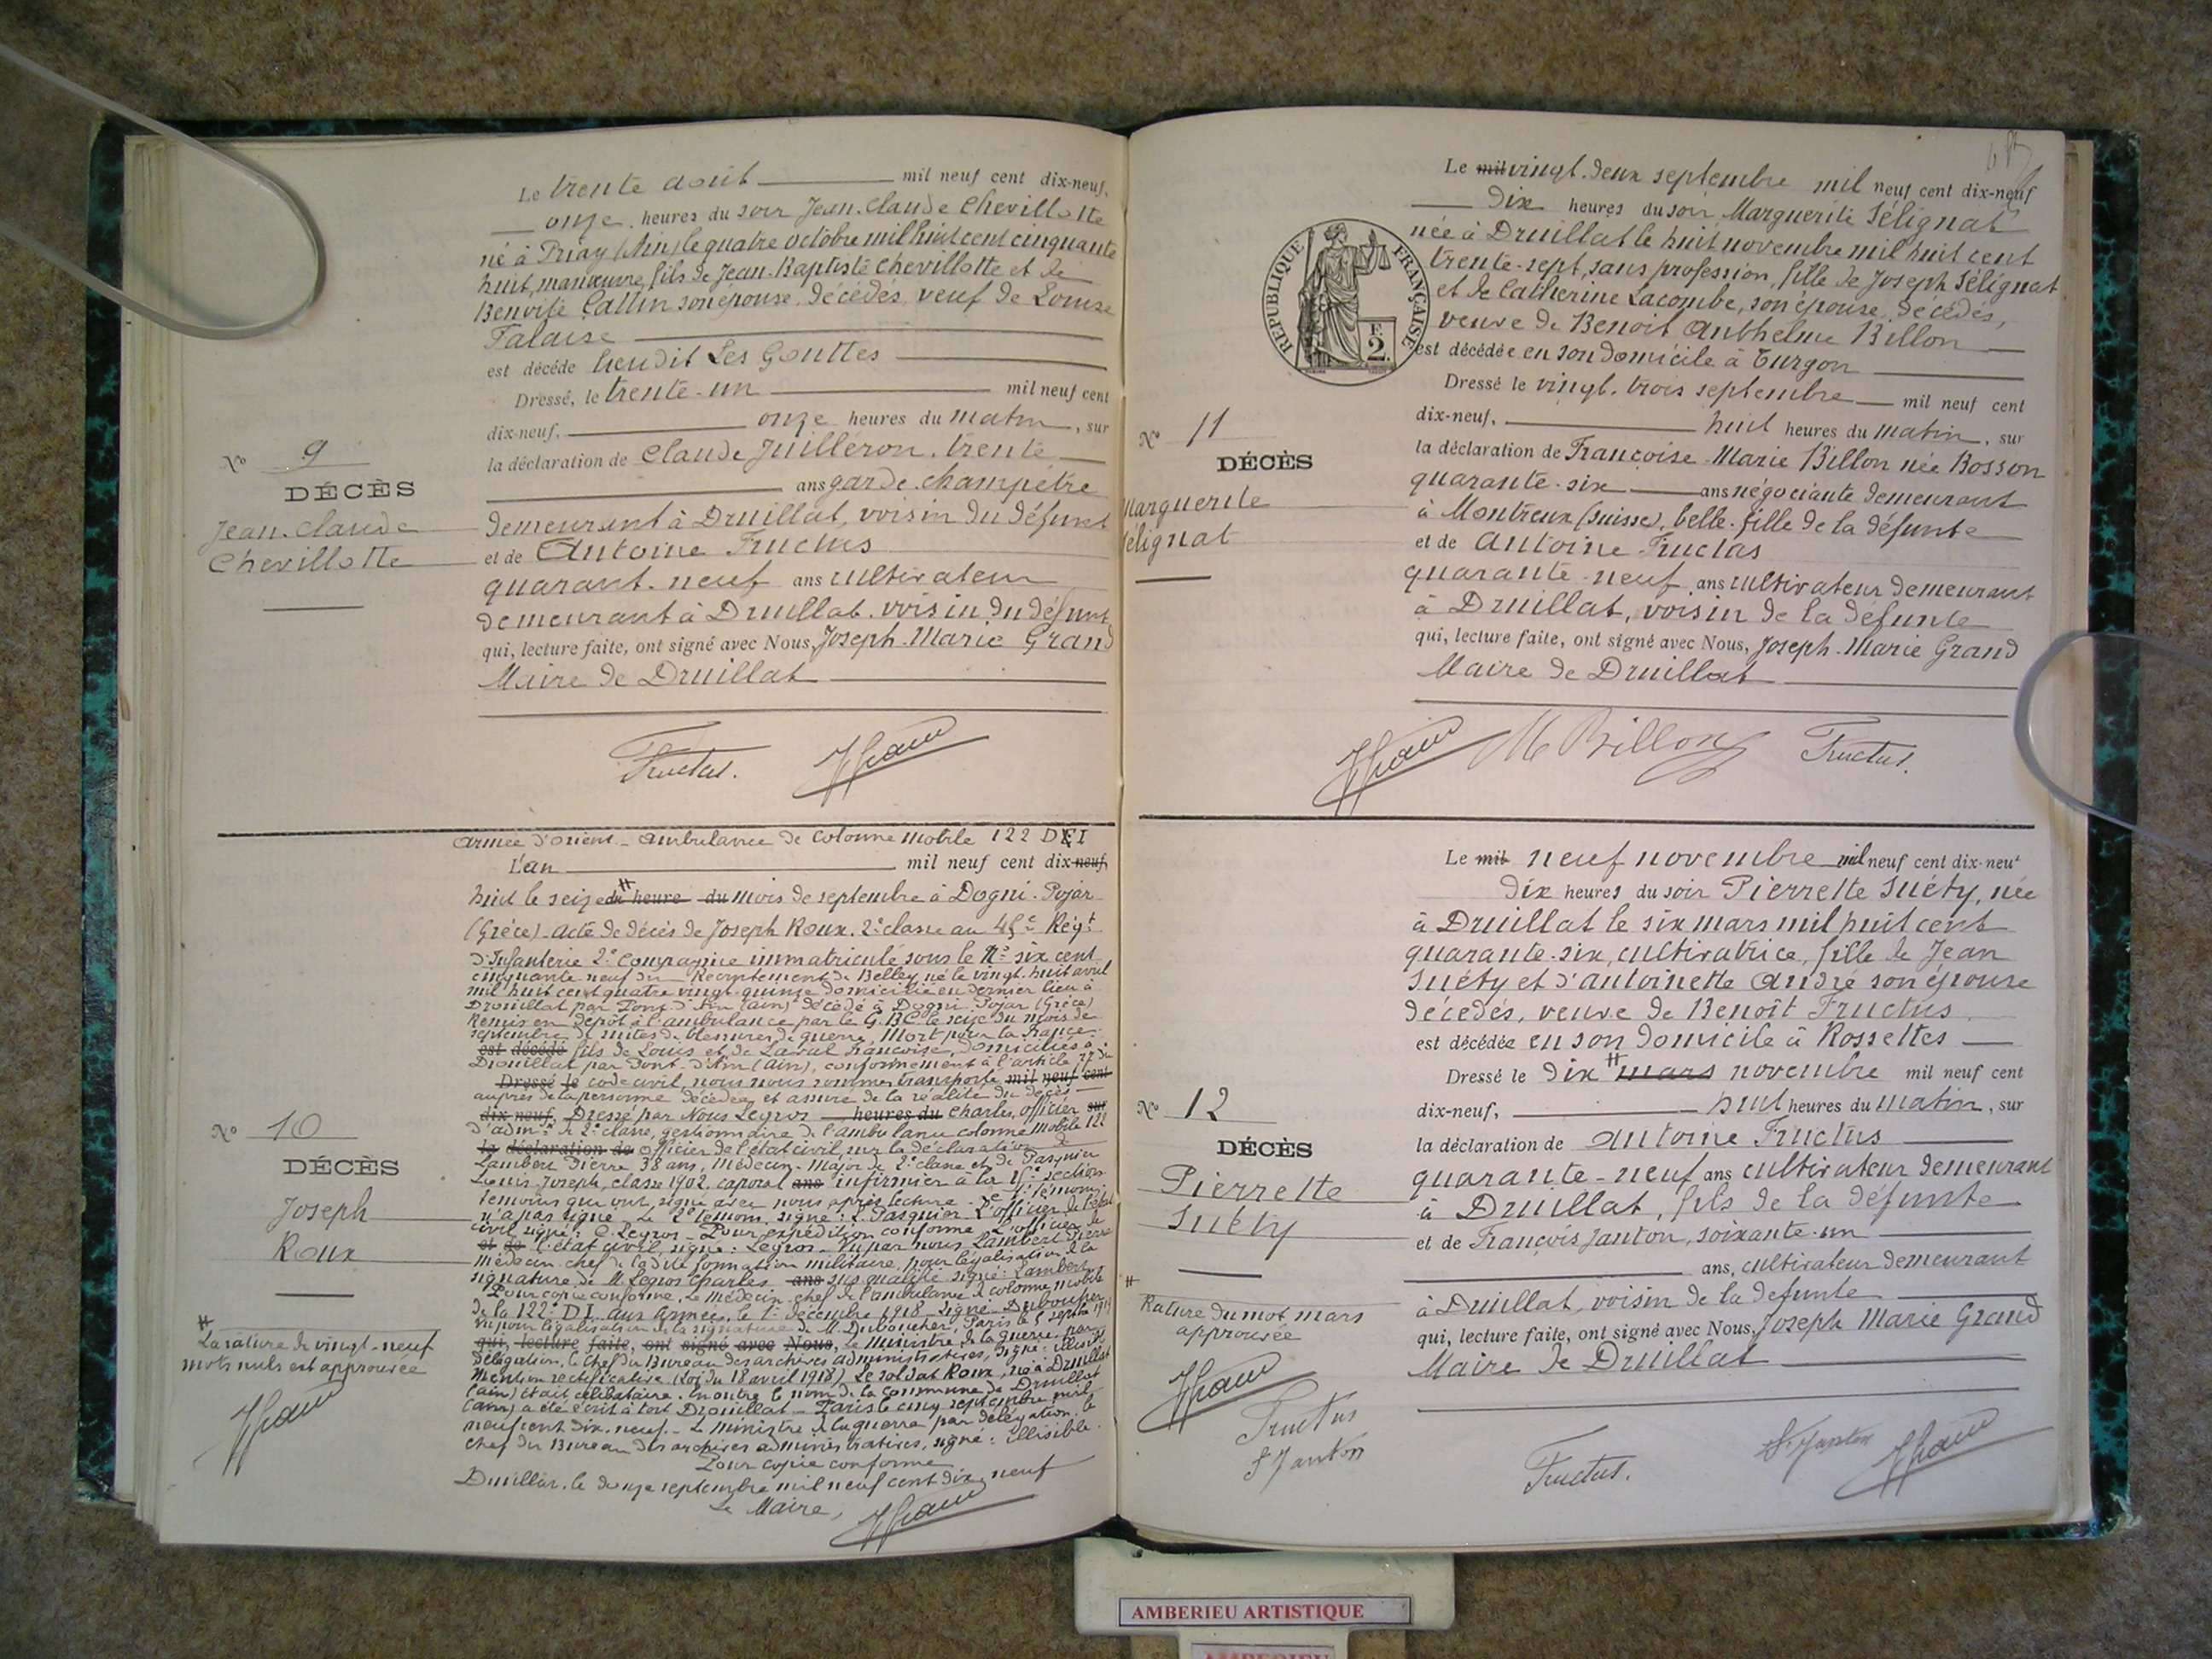 Le trente août mil neuf cent dix-neuf,
onze heures du soir Jean-Claude Chevillotte
né à Priay (Ain) le quatre octobre mil huit cent cinquante
huit, manœuvre, fils de Jean-Baptiste Chevillotte et de
Benoite Gallin son épouse, décédés, veuf de Louise
Falaise
est décédé lieudit Les Gouttes
Dressé, le trente-un mil neuf cent
dix-neuf, onze heures du matin, sur
la déclaration de Claude Juilléron, trente
ans garde-champêtre
demeurant à Druillat, voisin du défunt
et de Antoine Fructus
quarant-neuf ans cultivateur
demeurant à Druillat, voisin du défunt,
qui, lecture faite, ont signé avec Nous, Joseph-Marie Grand
Maire de Druillat
Fructus. JGrand
N° 9
DÉCÈS
Jean-Claude
Chevillotte
Armée d'Orient - Ambulance de Colonne Mobile 122 DI
L'an mil neuf cent dix-neuf
huit le seize du heure du mois de septembre à Dogni-Pojar
(Grèce) acte de décès de Joseph Roux, 2e classe au 45e Régt
d'Infanterie 2e Compagnie immatriculé sous le N° six cent
cinquante neuf du Recrutement de Belley, né le vingt-huit avril
mil huit cent quatre vingt-quinze domicilié en dernier lieu à
Drouillat par Pont d'Ain (Ain) décédé à Dogni Pojar (Grèce)
Remis en dépôt à l'ambulance par le G.B.C. le seize du mois de
septembre de suites de blessures de guerre, Mort pour la France
est décédé fils de Louis et de Laval Françoise, domiciliés à
Drouillat par Pont-d'Ain (Ain), conformément à l'article 77 du
Dressé le code civil, nous nous sommes transporté mil neuf cent
auprès de la personne décédée, et assuré de la réalité du décès
dix-neuf, Dressé par Nous Legros heures du Charles, officier sur
d'admon de 2e classe, gestionnaire de l'ambulance colonne mobile 122
la déclaration de officier de l'état civil, sur la déclaration de
Lambert Pierre 38 ans, Médecin-Major de 2e classe et de Pasquier
Louis Joseph, classe 1902, caporal ans infirmier à la 15e section
témoins qui ont signé avec nous après lecture - Le 1er témoin
n'a pas signé. Le 2e témoin, signé: L. Pasquier. L'officier de l'état
civil signé: C. Legros - Pour expédition conforme L'officier de
et de l'état civil, signé: Legros - Vu par nous Lambert Pierre
médecin chef de ladite formation militaire, pour légalisation de la
signature de M. Legros Charles ans sus qualifié signé: Lambert
Pour copie conforme, Le Médecin chef de l'ambulance de colonne mobile
de la 122e D.I. Aux Armées, le 1er décembre 1918. Signé: Duboucher
Vu pour légalisation de la signature de M. Duboucher, Paris le 5 septbre 1919
qui, lecture faite, ont signé avec Nous, Le Ministre de la guerre par
délégation, le chef du Bureau des archives administratives, signé: illisible
Mention rectificative (Loi du 18 avril 1918) Le soldat Roux, né à Druillat
(Ain) était célibataire. En outre le nom de la commune de Druillat
(Ain) a été écrit à tort Drouillat - Paris le cinq septembre mil
neuf cent dix-neuf. - Le Ministre de la guerre par délégation le
chef du Bureau des archives administratives, signé: illisible
Pour copie conforme
Druillat, le douze septembre mil neuf cent dix neuf
Le Maire, JGrand
N° 10
DÉCÈS
Joseph
Roux
# La rature de vingt-neuf
mots nuls est approuvée
JGrand
RÉPUBLIQUE FRANÇAISE
F.
2.
Le mil vingt-deux septembre mil neuf cent dix-neuf
dix heures du soir Marguerite Sélignat
née à Druillat le huit novembre mil huit cent
trente-sept, sans profession, fille de Joseph Sélignat
et de Catherine Lacombe, son épouse, décédés,
veuve de Benoit Anthelme Billon
est décédée en son domicile à Turgon
Dressé le vingt-trois septembre mil neuf cent
dix-neuf, huit heures du matin, sur
la déclaration de Françoise-Marie Billon née Bosson
quarante-six ans négociante demeurant
à Montreux (Suisse), belle-fille de la défunte
et de Antoine Fructus
quarante-neuf ans cultivateur demeurant
à Druillat, voisin de la défunte
qui, lecture faite, ont signé avec Nous, Joseph-Marie Grand
Maire de Druillat
JGrand M Billon Fructus.
N° 11
DÉCÈS
Marguerite
Sélignat
Le mil neuf novembre mil neuf cent dix-neuf
dix heures du soir Pierrette Suéty, née
à Druillat le six mars mil huit cent
quarante-six, cultivatrice, fille de Jean
Suéty et d'Antoinette André son épouse
décédés, veuve de Benoît Fructus
est décédée en son domicile à Rossettes
Dressé le dix # mars novembre mil neuf cent
dix-neuf, huit heures du matin, sur
la déclaration de Antoine Fructus
quarante-neuf ans cultivateur demeurant
à Druillat, fils de la défunte
et de François Janton, soixante-un
ans, cultivateur demeurant
à Druillat, voisin de la défunte
qui, lecture faite, ont signé avec Nous, Joseph Marie Grand
Maire de Druillat
Fructus. F. Janton JGrand
N° 12
DÉCÈS
Pierrette
Suéty
#
Rature du mot mars
approuvée
JGrand
Fructus
F Janton
AMBERIEU ARTISTIQUE
AMBERIEU